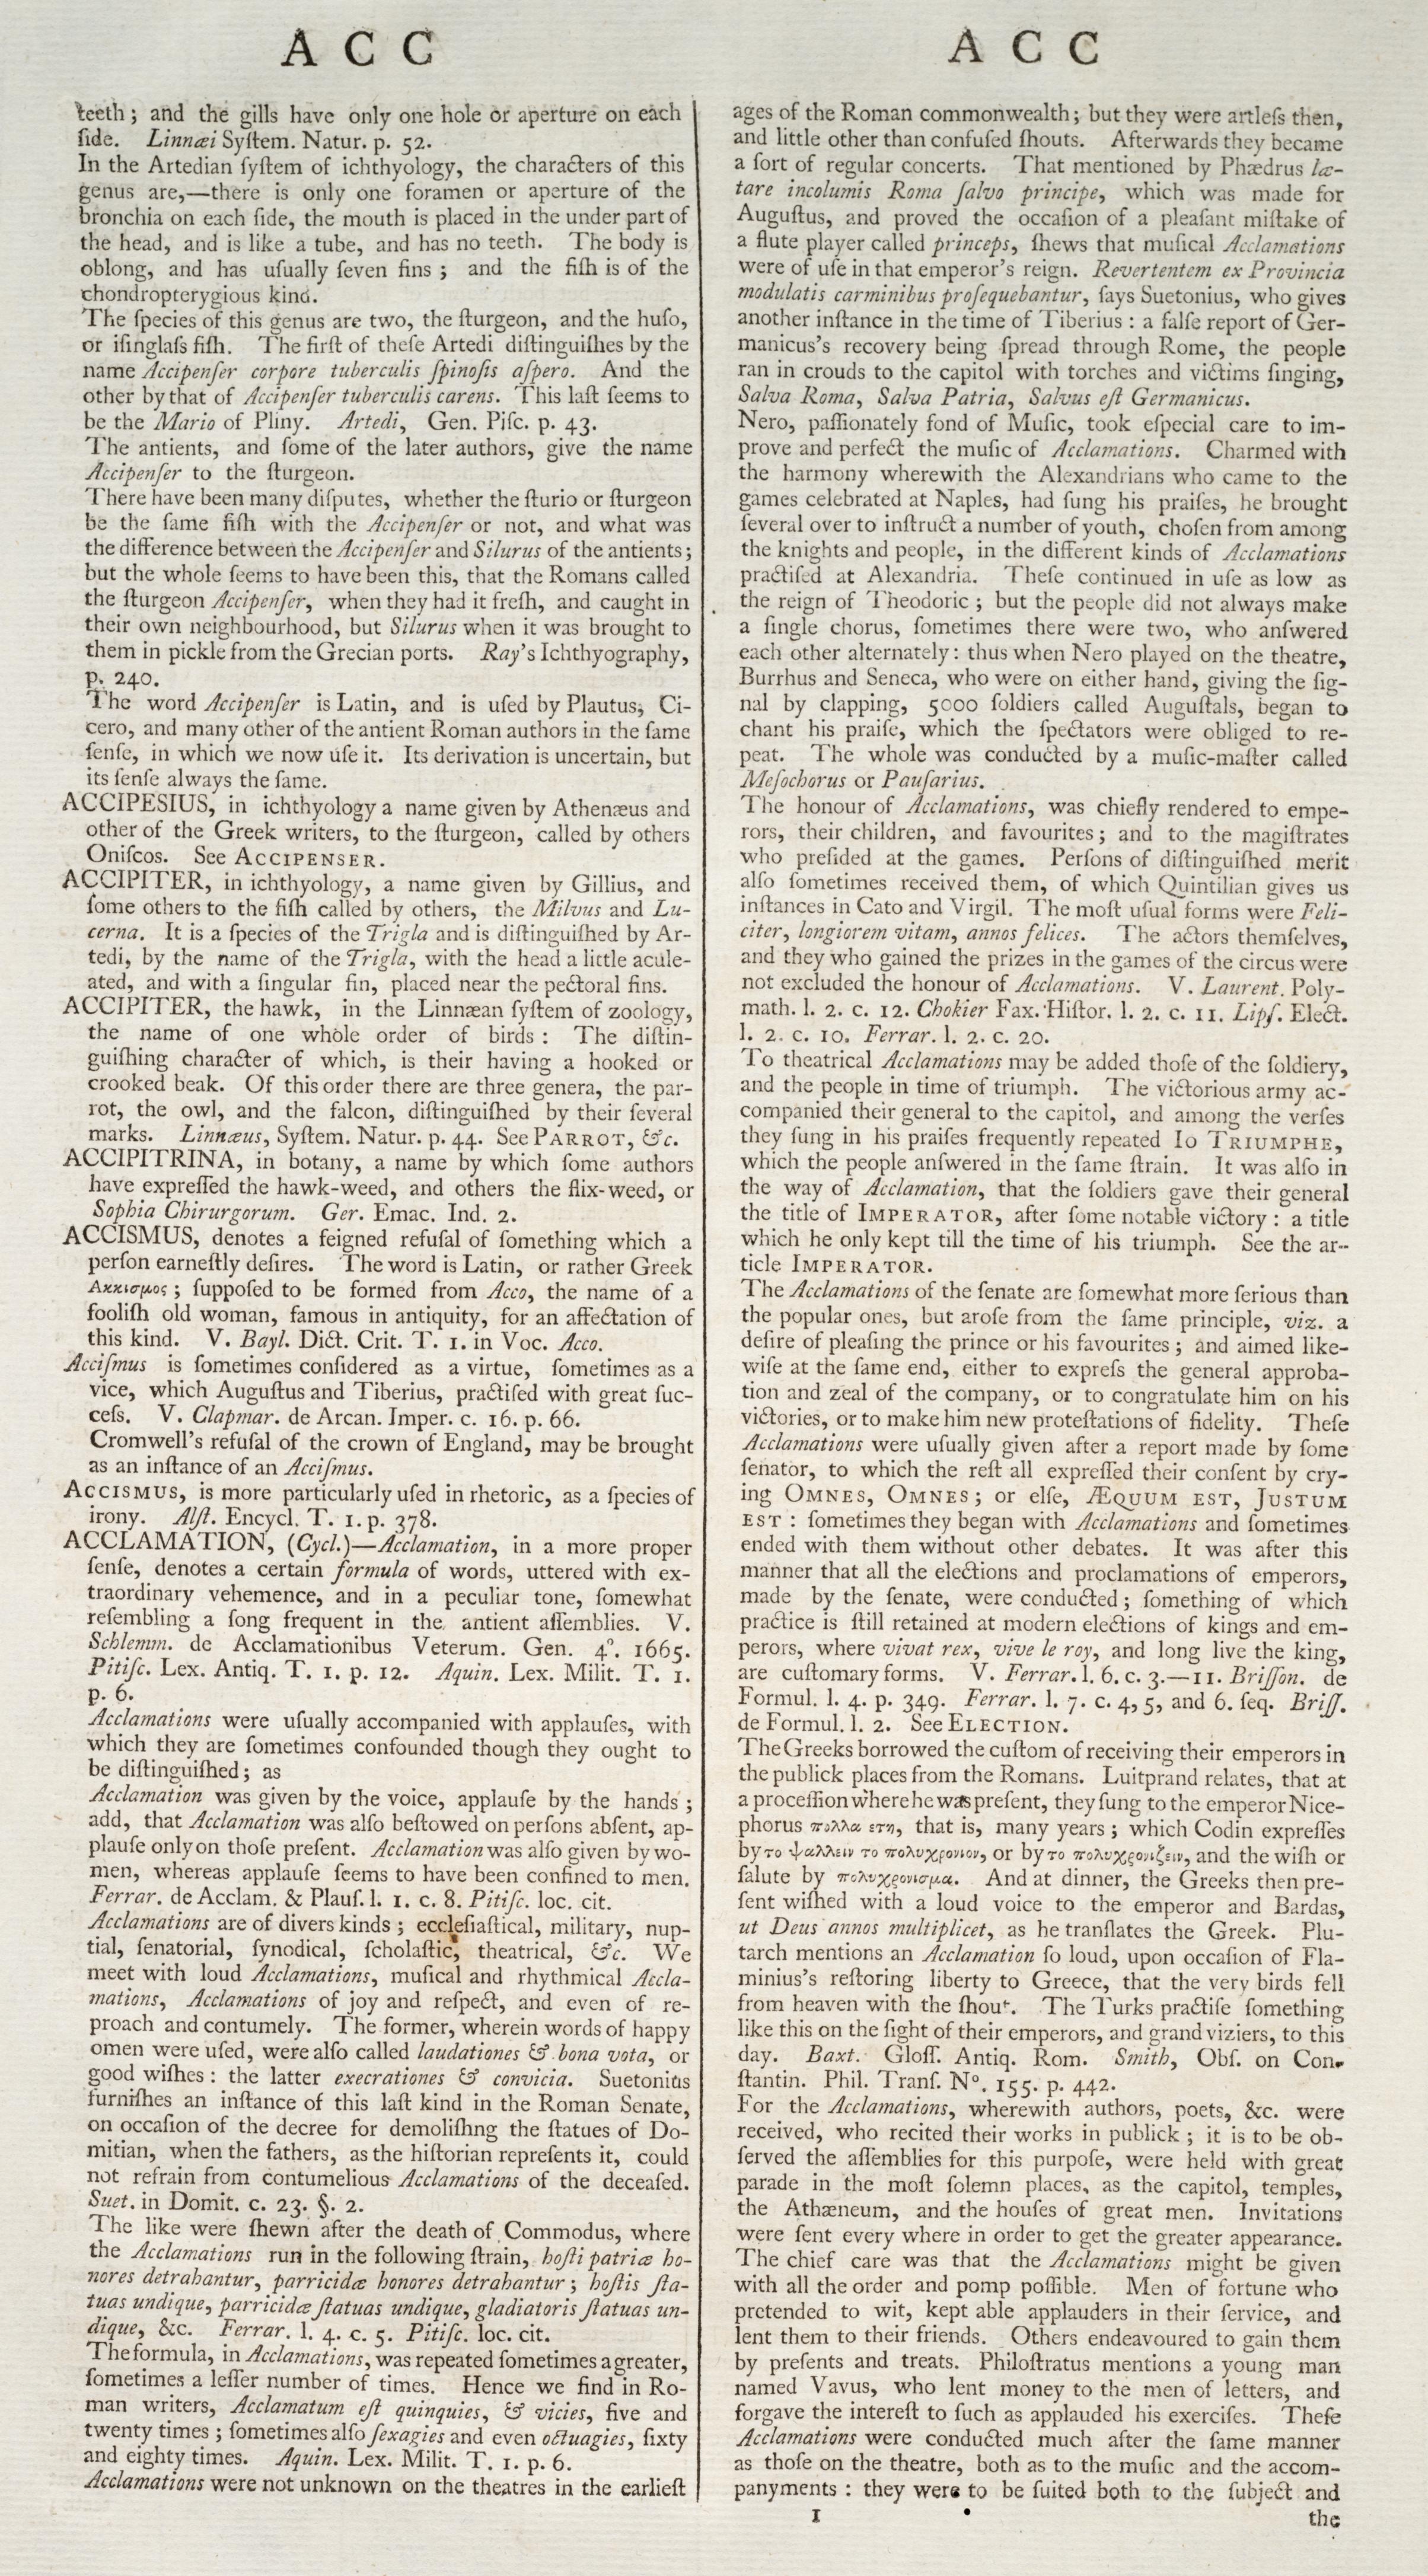 A C C
A C C
teeth; and the gills have only one hole or aperture on each
ſide. Linnæi Syſtem. Natur. p. 52.
In the Artedian ſyſtem of ichthyology, the characters of this
genus are,—there is only one foramen or aperture of the
bronchia on each ſide, the mouth is placed in the under part of
the head, and is like a tube, and has no teeth. The body is
oblong, and has uſually ſeven fins; and the fiſh is of the
chondropterygious kind.
The ſpecies of this genus are two, the ſturgeon, and the huſo,
or iſinglaſs fiſh. The firſt of theſe Artedi diſtinguiſhes by the
name Accipenſer corpore tuberculis ſpinoſis aſpero. And the
other by that of Accipenſer tuberculis carens. This laſt ſeems to
be the Mario of Pliny. Artedi, Gen. Piſc. p. 43.
The antients, and ſome of the later authors, give the name
Accipenſer to the ſturgeon.
There have been many diſputes, whether the ſturio or ſturgeon
be the ſame fiſh with the Accipenſer or not, and what was
the difference between the Accipenſer and Silurus of the antients;
but the whole ſeems to have been this, that the Romans called
the ſturgeon Accipenſer, when they had it freſh, and caught in
their own neighbourhood, but Silurus when it was brought to
them in pickle from the Grecian ports. Ray's Ichthyography,
p. 240.
The word Accipenſer is Latin, and is uſed by Plautus, Ci-
cero, and many other of the antient Roman authors in the ſame
ſenſe, in which we now uſe it. Its derivation is uncertain, but
its ſenſe always the ſame.
ACCIPESIUS, in ichthyology a name given by Athenæus and
other of the Greek writers, to the ſturgeon, called by others
Oniſcos. See ACCIPENSER.
ACCIPITER, in ichthyology, a name given by Gillius, and
ſome others to the fiſh called by others, the Milvus and Lu-
cerna. It is a ſpecies of the Trigla and is diſtinguiſhed by Ar-
tedi, by the name of the Trigla, with the head a little acule-
ated, and with a ſingular fin, placed near the pectoral fins.
ACCIPITER, the hawk, in the Linnæan ſyſtem of zoology,
the name of one whole order of birds: The diſtin-
guiſhing character of which, is their having a hooked or
crooked beak. Of this order there are three genera, the par-
rot, the owl, and the falcon, diſtinguiſhed by their ſeveral
marks. Linnæus, Syſtem. Natur. p. 44. See PARROT, &c.
ACCIPITRINA, in botany, a name by which ſome authors
have expreſſed the hawk-weed, and others the flix-weed, or
Sophia Chirurgorum. Ger. Emac. Ind. 2.
ACCISMUS, denotes a feigned refuſal of ſomething which a
perſon earneſtly deſires. The word is Latin, or rather Greek
Ακκισμος; ſuppoſed to be formed from Acco, the name of a
fooliſh old woman, famous in antiquity, for an affectation of
this kind. V. Bayl. Dict. Crit. T. 1. in Voc. Acco.
Acciſmus is ſometimes conſidered as a virtue, ſometimes as a
vice, which Auguſtus and Tiberius, practiſed with great ſuc-
ceſs. V. Clapmar. de Arcan. Imper. c. 16. p. 66.
Cromwell's refuſal of the crown of England, may be brought
as an inſtance of an Acciſmus.
ACCISMUS, is more particularly uſed in rhetoric, as a ſpecies of
irony. Alſt. Encycl. T. 1. p. 378.
ACCLAMATION, (Cycl.)—Acclamation, in a more proper
ſenſe, denotes a certain formula of words, uttered with ex-
traordinary vehemence, and in a peculiar tone, ſomewhat
reſembling a ſong frequent in the antient aſſemblies. V.
Schlemm. de Acclamationibus Veterum. Gen. 4º. 1665.
Pitiſc. Lex. Antiq. T. 1. p. 12. Aquin. Lex. Milit. T. 1.
p. 6.
Acclamations were uſually accompanied with applauſes, with
which they are ſometimes confounded though they ought to
be diſtinguiſhed; as
Acclamation was given by the voice, applauſe by the hands;
add, that Acclamation was alſo beſtowed on perſons abſent, ap-
plauſe only on thoſe preſent. Acclamation was alſo given by wo-
men, whereas applauſe ſeems to have been confined to men.
Ferrar. de Acclam. & Plauſ. l. 1. c. 8. Pitiſc. loc. cit.
Acclamations are of divers kinds; eccleſiaſtical, military, nup-
tial, ſenatorial, ſynodical, ſcholaſtic, theatrical, &c. We
meet with loud Acclamations, muſical and rhythmical Accla-
mations, Acclamations of joy and reſpect, and even of re-
proach and contumely. The former, wherein words of happy
omen were uſed, were alſo called laudationes & bona vota, or
good wiſhes: the latter execrationes & convicia. Suetonius
furniſhes an inſtance of this laſt kind in the Roman Senate,
on occaſion of the decree for demoliſhng the ſtatues of Do-
mitian, when the fathers, as the hiſtorian repreſents it, could
not refrain from contumelious Acclamations of the deceaſed.
Suet. in Domit. c. 23. §. 2.
The like were ſhewn after the death of Commodus, where
the Acclamations run in the following ſtrain, hoſti patriæ ho-
nores detrahantur, parricidæ honores detrahantur; hoſtis ſta-
tuas undique, parricidæ ſtatuas undique, gladiatoris ſtatuas un-
dique, &c. Ferrar. l. 4. c. 5. Pitiſc. loc. cit.
The formula, in Acclamations, was repeated ſometimes a greater,
ſometimes a leſſer number of times. Hence we find in Ro-
man writers, Acclamatum eſt quinquies, & vicies, five and
twenty times; ſometimes alſo ſexagies and even octuagies, ſixty
and eighty times. Aquin. Lex. Milit. T. 1. p. 6.
Acclamations were not unknown on the theatres in the earlieſt
ages of the Roman commonwealth; but they were artleſs then,
and little other than confuſed ſhouts. Afterwards they became
a ſort of regular concerts. That mentioned by Phædrus læ-
tare incolumis Roma ſalvo principe, which was made for
Auguſtus, and proved the occaſion of a pleaſant miſtake of
a flute player called princeps, ſhews that muſical Acclamations
were of uſe in that emperor's reign. Revertentem ex Provincia
modulatis carminibus proſequebantur, ſays Suetonius, who gives
another inſtance in the time of Tiberius: a falſe report of Ger-
manicus's recovery being ſpread through Rome, the people
ran in crouds to the capitol with torches and victims ſinging,
Salva Roma, Salva Patria, Salvus eſt Germanicus.
Nero, paſſionately fond of Muſic, took eſpecial care to im-
prove and perfect the muſic of Acclamations. Charmed with
the harmony wherewith the Alexandrians who came to the
games celebrated at Naples, had ſung his praiſes, he brought
ſeveral over to inſtruct a number of youth, choſen from among
the knights and people, in the different kinds of Acclamations
practiſed at Alexandria. Theſe continued in uſe as low as
the reign of Theodoric; but the people did not always make
a ſingle chorus, ſometimes there were two, who anſwered
each other alternately: thus when Nero played on the theatre,
Burrhus and Seneca, who were on either hand, giving the ſig-
nal by clapping, 5000 ſoldiers called Auguſtals, began to
chant his praiſe, which the ſpectators were obliged to re-
peat. The whole was conducted by a muſic-maſter called
Meſochorus or Pauſarius.
The honour of Acclamations, was chiefly rendered to empe-
rors, their children, and favourites; and to the magiſtrates
who preſided at the games. Perſons of diſtinguiſhed merit
alſo ſometimes received them, of which Quintilian gives us
inſtances in Cato and Virgil. The moſt uſual forms were Feli-
citer, longiorem vitam, annos felices. The actors themſelves,
and they who gained the prizes in the games of the circus were
not excluded the honour of Acclamations. V. Laurent. Poly-
math. l. 2. c. 12. Chokier Fax. Hiſtor. l. 2. c. 11. Lipſ. Elect.
l. 2. c. 10. Ferrar. l. 2. c. 20.
To theatrical Acclamations may be added thoſe of the ſoldiery,
and the people in time of triumph. The victorious army ac-
companied their general to the capitol, and among the verſes
they ſung in his praiſes frequently repeated Io TRIUMPHE,
which the people anſwered in the ſame ſtrain. It was alſo in
the way of Acclamation, that the ſoldiers gave their general
the title of IMPERATOR, after ſome notable victory: a title
which he only kept till the time of his triumph. See the ar-
ticle IMPERATOR.
The Acclamations of the ſenate are ſomewhat more ſerious than
the popular ones, but aroſe from the ſame principle, viz. a
deſire of pleaſing the prince or his favourites; and aimed like-
wiſe at the ſame end, either to expreſs the general approba-
tion and zeal of the company, or to congratulate him on his
victories, or to make him new proteſtations of fidelity. Theſe
Acclamations were uſually given after a report made by ſome
ſenator, to which the reſt all expreſſed their conſent by cry-
ing OMNES, OMNES; or elſe, ÆQUUM EST, JUSTUM
EST: ſometimes they began with Acclamations and ſometimes
ended with them without other debates. It was after this
manner that all the elections and proclamations of emperors,
made by the ſenate, were conducted; ſomething of which
practice is ſtill retained at modern elections of kings and em-
perors, where vivat rex, vive le roy, and long live the king,
are cuſtomary forms. V. Ferrar. l. 6. c. 3.—11. Briſſon. de
Formul. l. 4. p. 349. Ferrar. l. 7. c. 4, 5, and 6. ſeq. Briſſ.
de Formul. l. 2. See ELECTION.
The Greeks borrowed the cuſtom of receiving their emperors in
the publick places from the Romans. Luitprand relates, that at
a proceſſion where he was preſent, they ſung to the emperor Nice-
phorus πολλα ετη, that is, many years; which Codin expreſſes
by το ψαλλειν το πολυχρονιον, or by το πολυχρονιζειν, and the wiſh or
ſalute by πολυχρονισμα. And at dinner, the Greeks then pre-
ſent wiſhed with a loud voice to the emperor and Bardas,
ut Deus annos multiplicet, as he tranſlates the Greek. Plu-
tarch mentions an Acclamation ſo loud, upon occaſion of Fla-
minius's reſtoring liberty to Greece, that the very birds fell
from heaven with the ſhout. The Turks practiſe ſomething
like this on the ſight of their emperors, and grand viziers, to this
day. Baxt. Gloſſ. Antiq. Rom. Smith, Obſ. on Con-
ſtantin. Phil. Tranſ. Nº. 155. p. 442.
For the Acclamations, wherewith authors, poets, &c. were
received, who recited their works in publick; it is to be ob-
ſerved the aſſemblies for this purpoſe, were held with great
parade in the moſt ſolemn places, as the capitol, temples,
the Athæneum, and the houſes of great men. Invitations
were ſent every where in order to get the greater appearance.
The chief care was that the Acclamations might be given
with all the order and pomp poſſible. Men of fortune who
pretended to wit, kept able applauders in their ſervice, and
lent them to their friends. Others endeavoured to gain them
by preſents and treats. Philoſtratus mentions a young man
named Vavus, who lent money to the men of letters, and
forgave the intereſt to ſuch as applauded his exerciſes. Theſe
Acclamations were conducted much after the ſame manner
as thoſe on the theatre, both as to the muſic and the accom-
panyments: they were to be ſuited both to the ſubject and
I
the